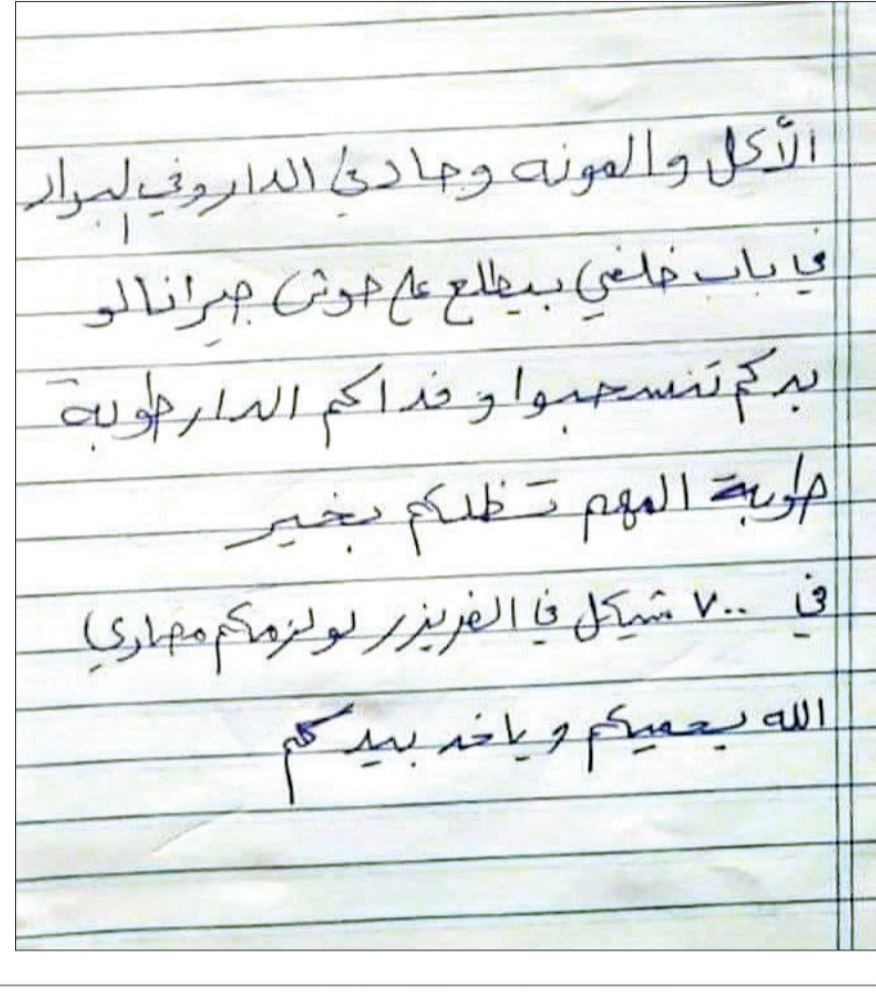 الأكل والمونه وحاد في الدار وفي البراد
في باب خلفي بيطلع ع حوش جيرانا لو
بدكم تنسحبوا و فداكم الدار طوبة
طوبة المهم تظلكم بخير
في ٧٠٠ شيكل في الفريزر لو لزمكم مصاري
الله يحميكم و ياخد بيدكم